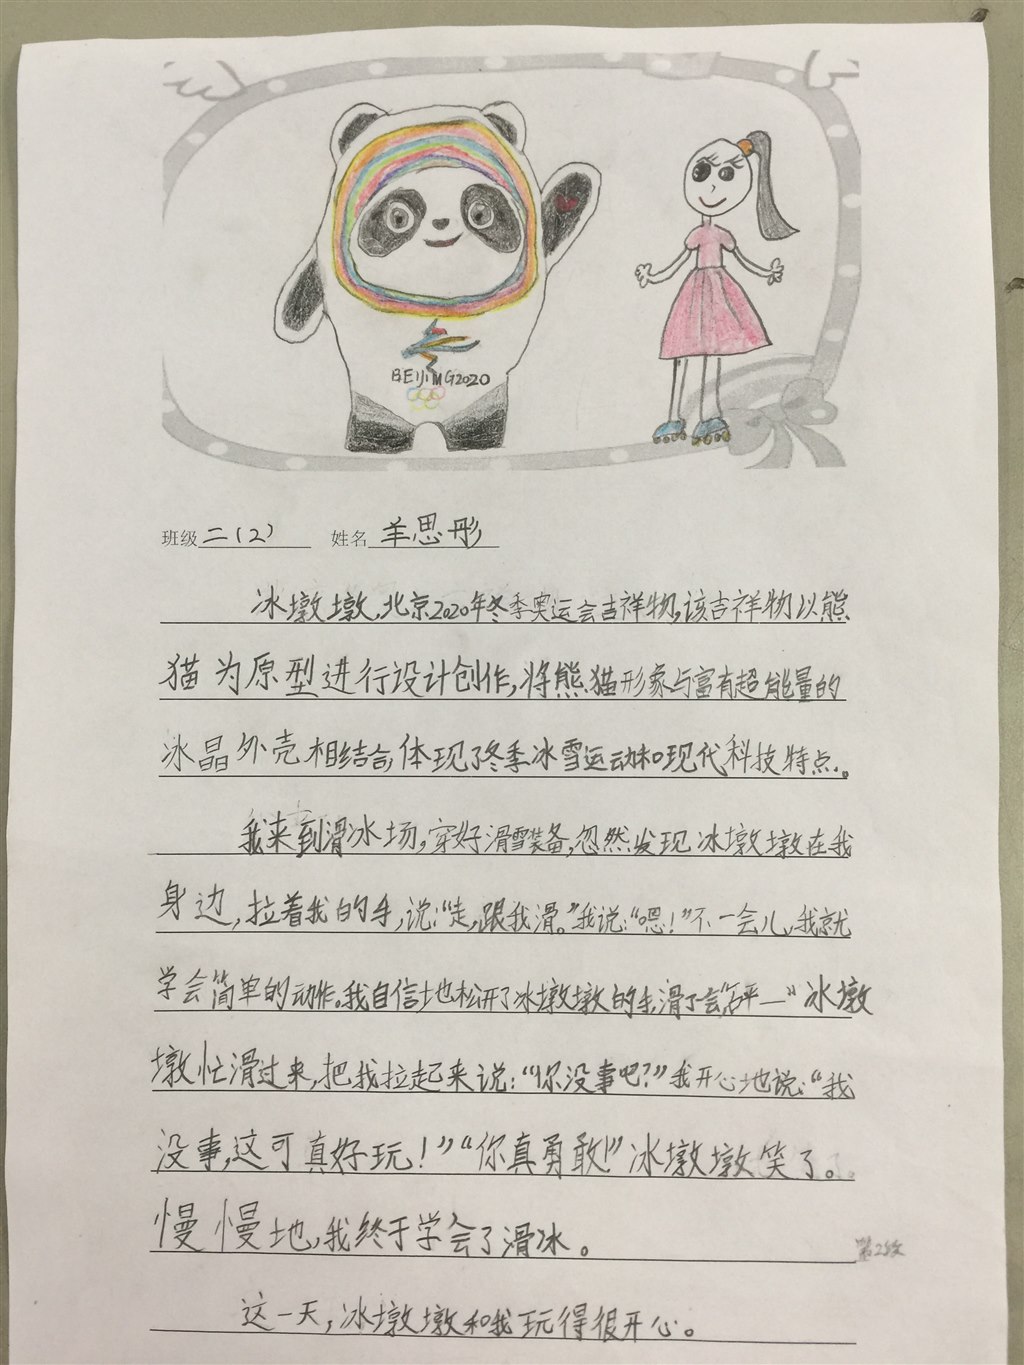 BEIJING2020
班级二(2) 姓名羊思彤
冰墩墩,北京2020年冬季奥运会吉祥物,该吉祥物以熊
猫为原型进行设计创作,将熊猫形象与富有超能量的
冰晶外壳相结合,体现了冬季冰雪运动和现代科技特点。
我来到滑冰场,穿好滑雪装备,忽然发现冰墩墩在我
身边,拉着我的手,说:“走,跟我滑。”我说:“嗯!”不一会儿,我就
学会简单的动作。我自信地松开了冰墩墩的手,滑了会“砰—”冰墩
墩忙滑过来,把我拉起来说:“你没事吧?”我开心地说:“我
没事,这可真好玩!”“你真勇敢!”冰墩墩笑了。
慢慢地,我终于学会了滑冰。
这一天,冰墩墩和我玩得很开心。